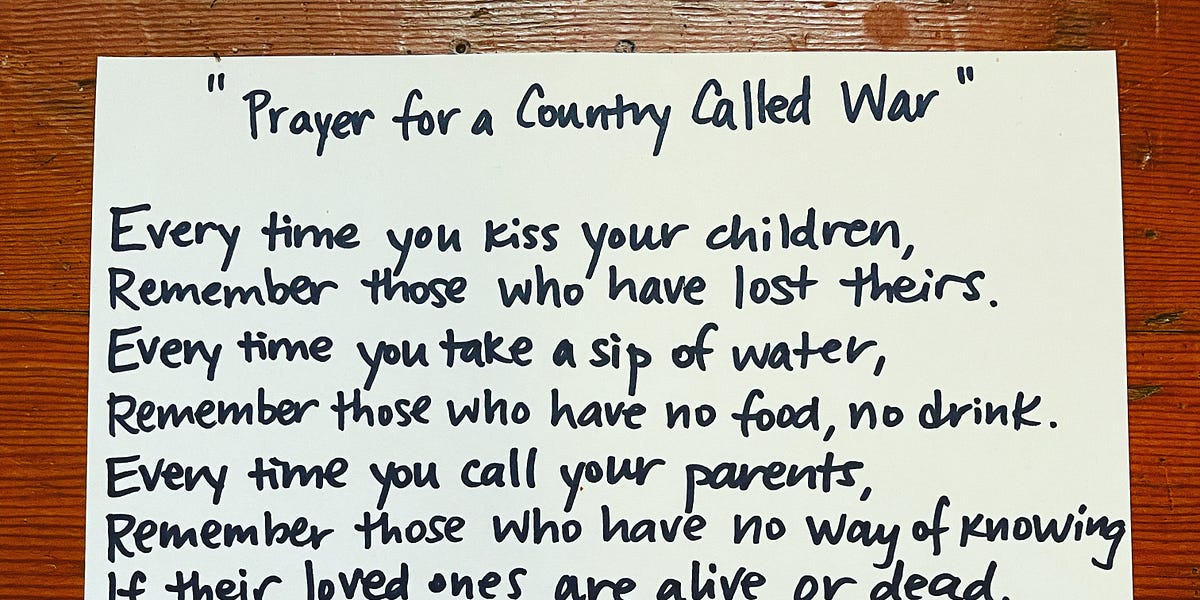 "Prayer for a Country Called War"
Every time you kiss your children,
Remember those who have lost theirs.
Every time you take a sip of water,
Remember those who have no food, no drink.
Every time you call your parents,
Remember those who have no way of knowing
If their loved ones are alive or dead.